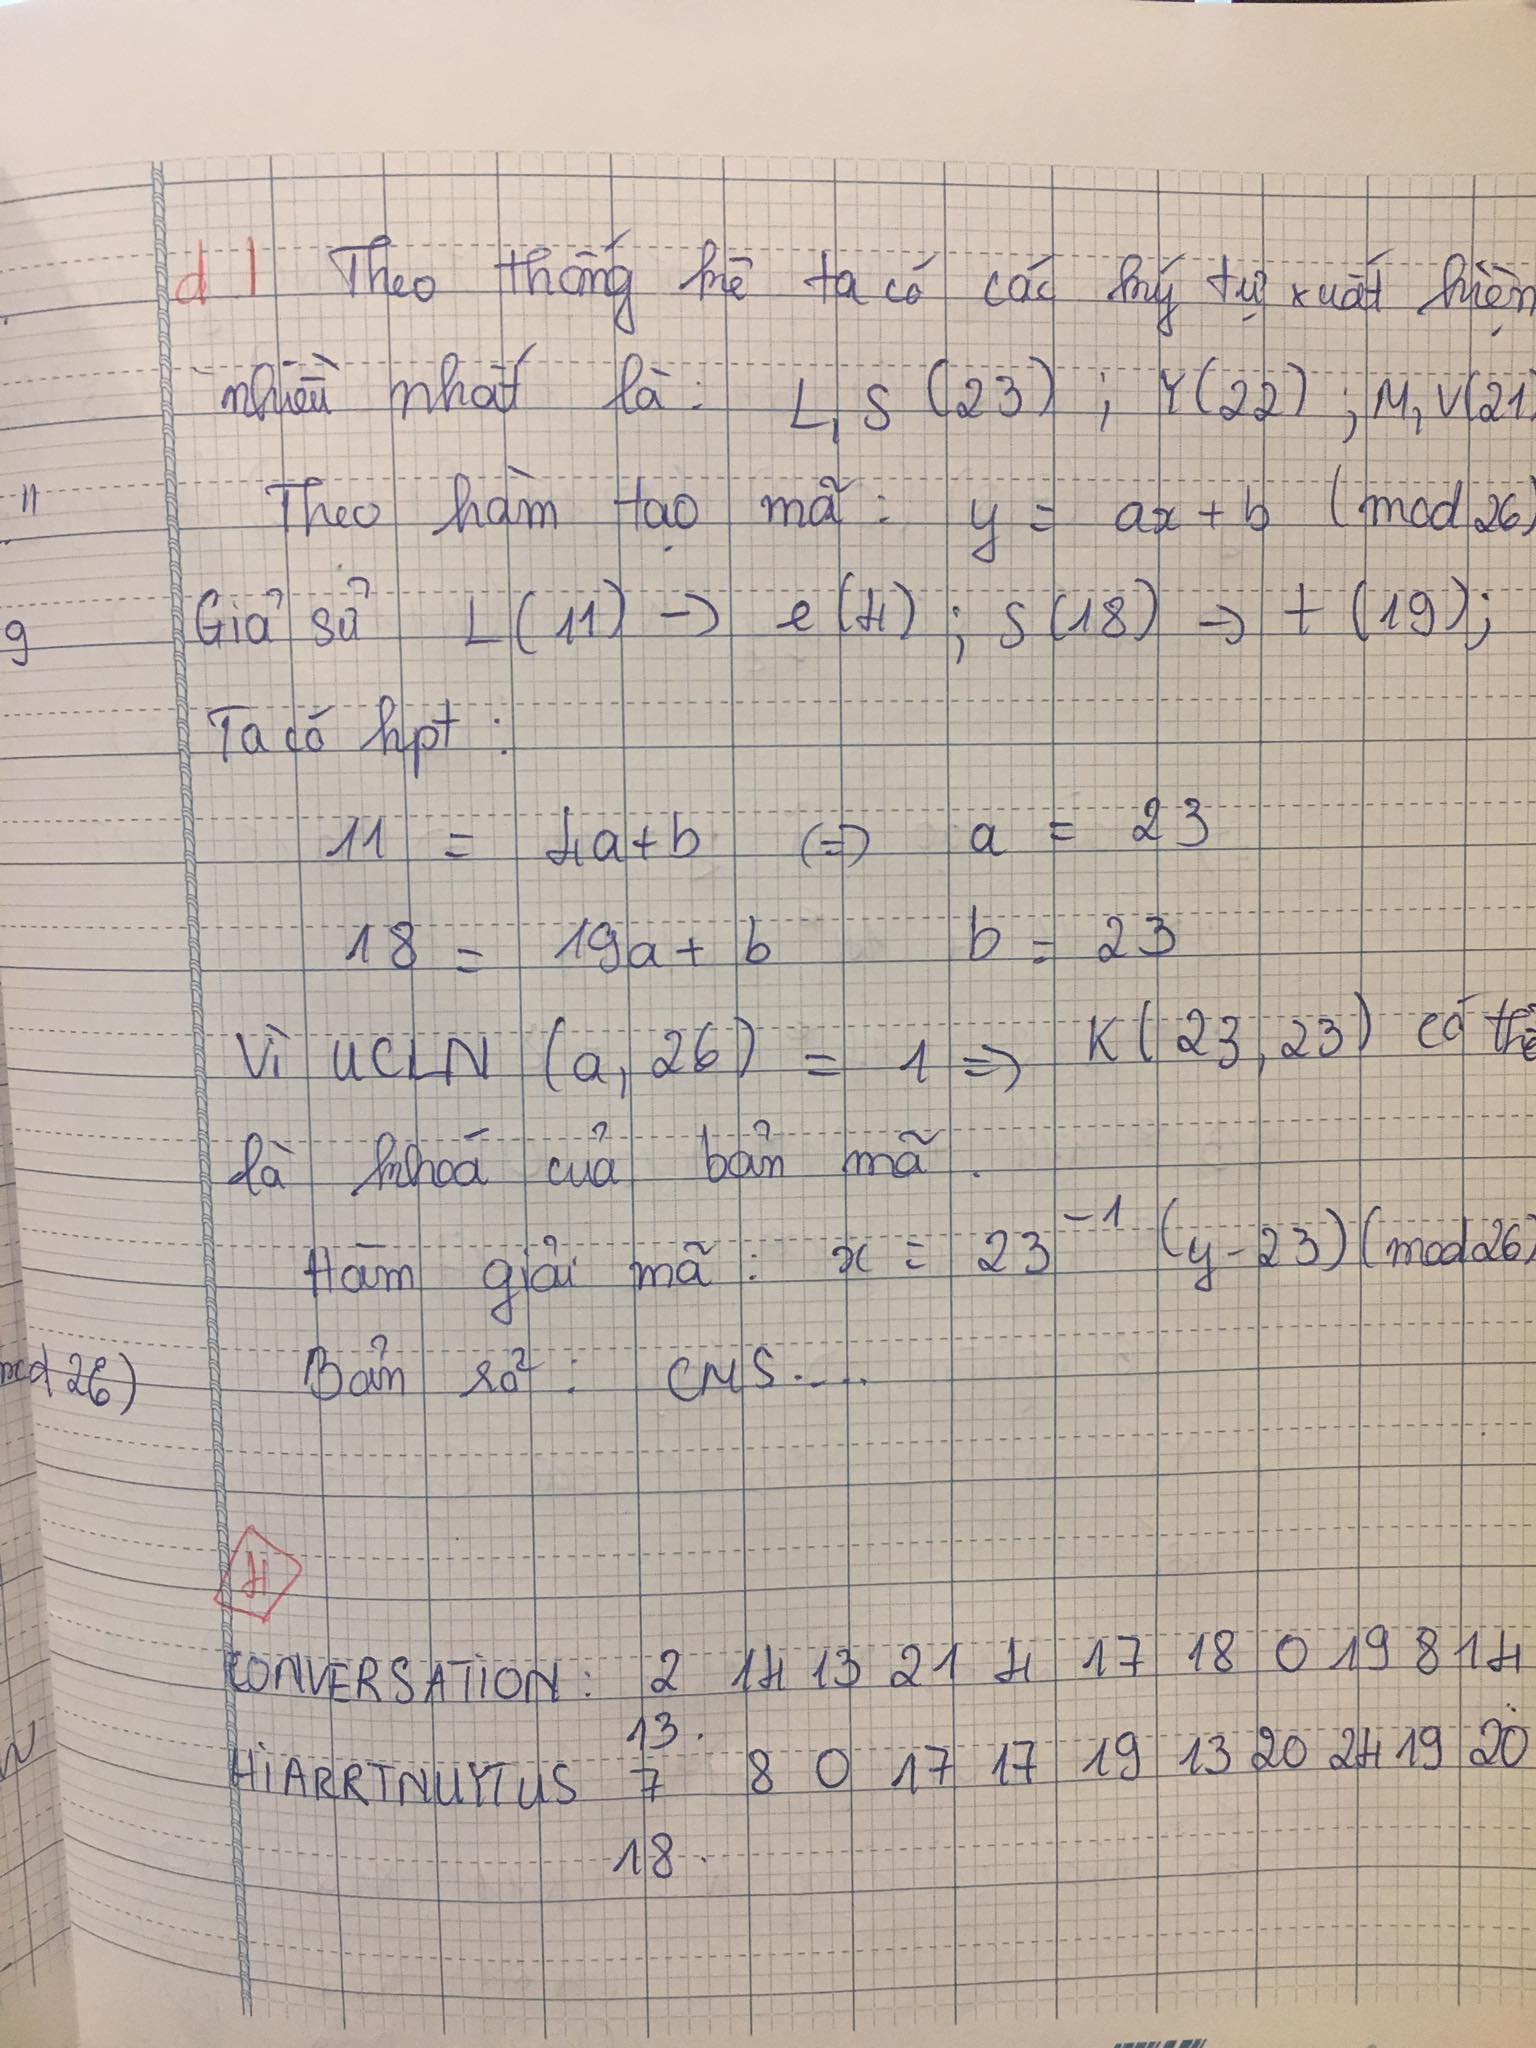 d) Theo thống kê ta có các ký tự xuất hiện
nhiều nhất là: L, S (23) ; Y(22) ; M, V(21)
"
Theo hàm tạo mã: y = ax + b (mod 26)
9
Giả sử L(11) → e(4) ; S(18) → t(19);
Ta có hpt:
11 = 4a+b (=) a = 23
18 = 19a + b b = 23
Vì UCLN (a, 26) = 1 => K(23, 23) có thể
là khoá của bản mã.
Hàm giải mã: x = 23⁻¹ (y - 23)(mod 26)
mod 26)
Bản số: CMS.....
4
CONVERSATION: 2 14 13 21 4 17 18 0 19 8 14
13.
HIARRTNUYTUS 7 8 0 17 17 19 13 20 24 19 20
18.